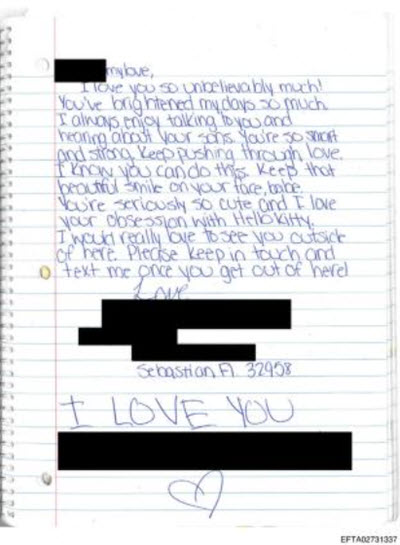 my love,
I love you so unbelievably much!
You've brightened my days so much.
I always enjoy talking to you and
hearing about your sons. You're so smart
and strong. Keep pushing through love.
I know you can do this. Keep that
beautiful smile on your face, babe.
You're seriously so cute and I love
your obsession with Hello Kitty.
I would really love to see you outside
of here. Please keep in touch and
text me once you get out of here!
Love
Sebastian Fl 32958
I LOVE YOU
EFTA02731337